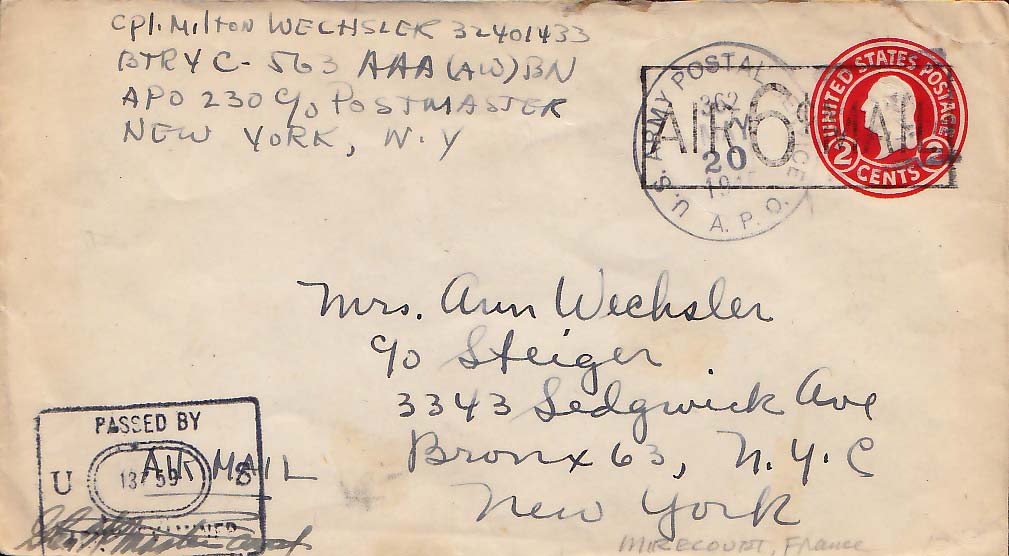 Cpl. Milton WECHSLER 32401433
BTRY C - 563 AAA (AW) BN
APO 230 c/o POSTMASTER
NEW YORK, N.Y
U.S. ARMY POSTAL SERVICE
362
20
A.P.O.
AIR 6 MAIL
UNITED STATES POSTAGE
2 CENTS 2
Mrs. Ann Wechsler
c/o Steiger
3343 Sedgwick Ave
Bronx 63, N.Y.C
New York
PASSED BY
U S
AIR MAIL
MIRECOURT, France